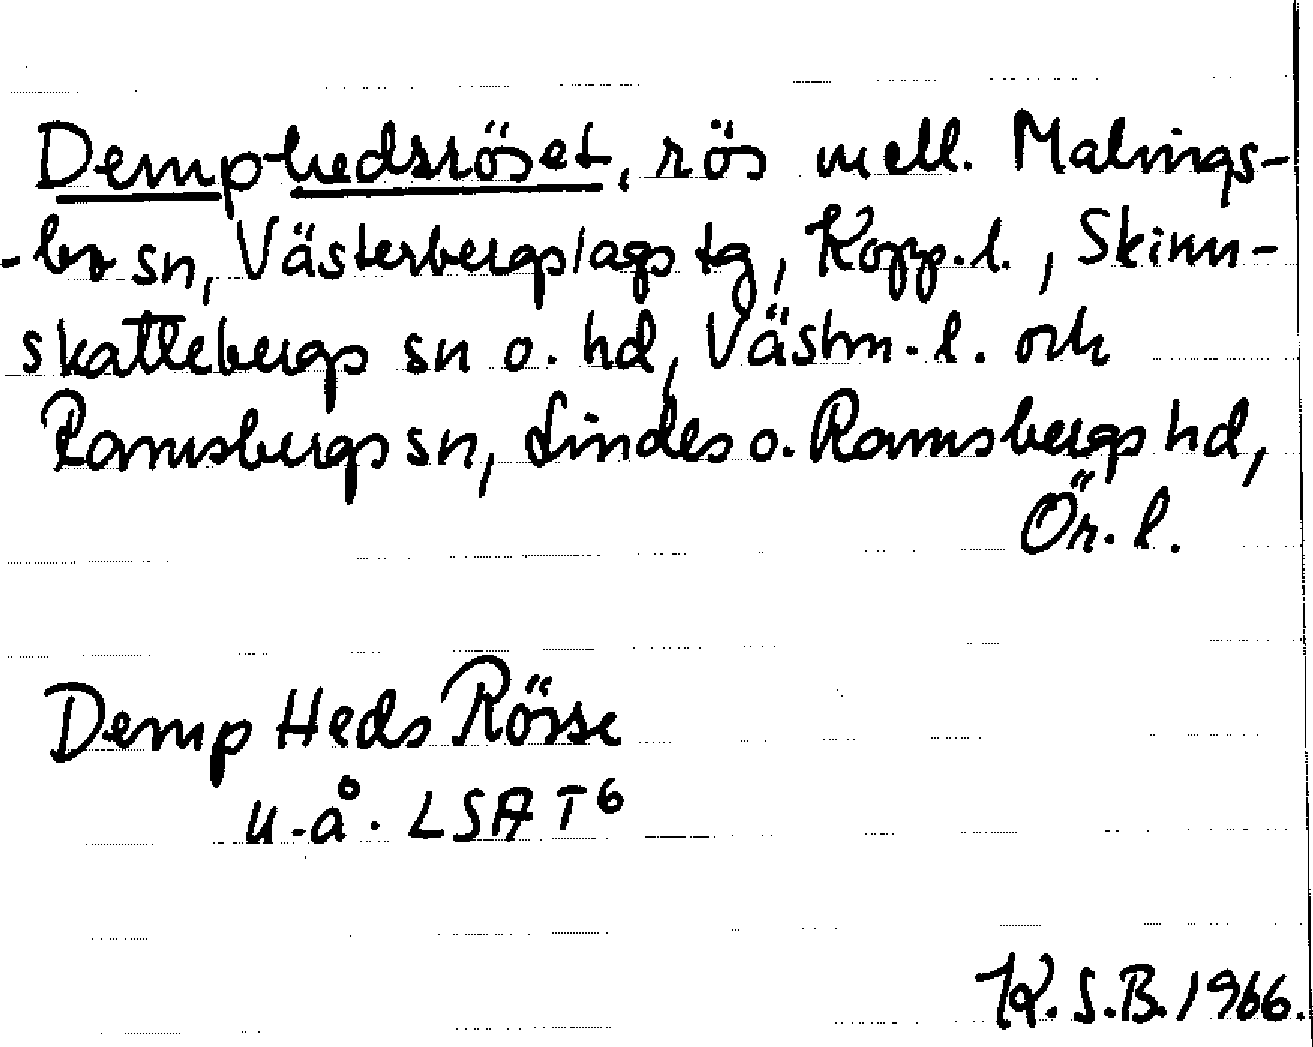 Demphedsröset, rös mell. Malings-
-bo sn, Västerbergslags tg, Kopp.l., Skinn-
skattebergs sn o. hd, Västm.l. och
Ramsbergs sn, Lindes o. Ramsbergs hd,
Ör. l.
Demp Heds Rösse
u.å. LSA T6
K.S.B. 1966.